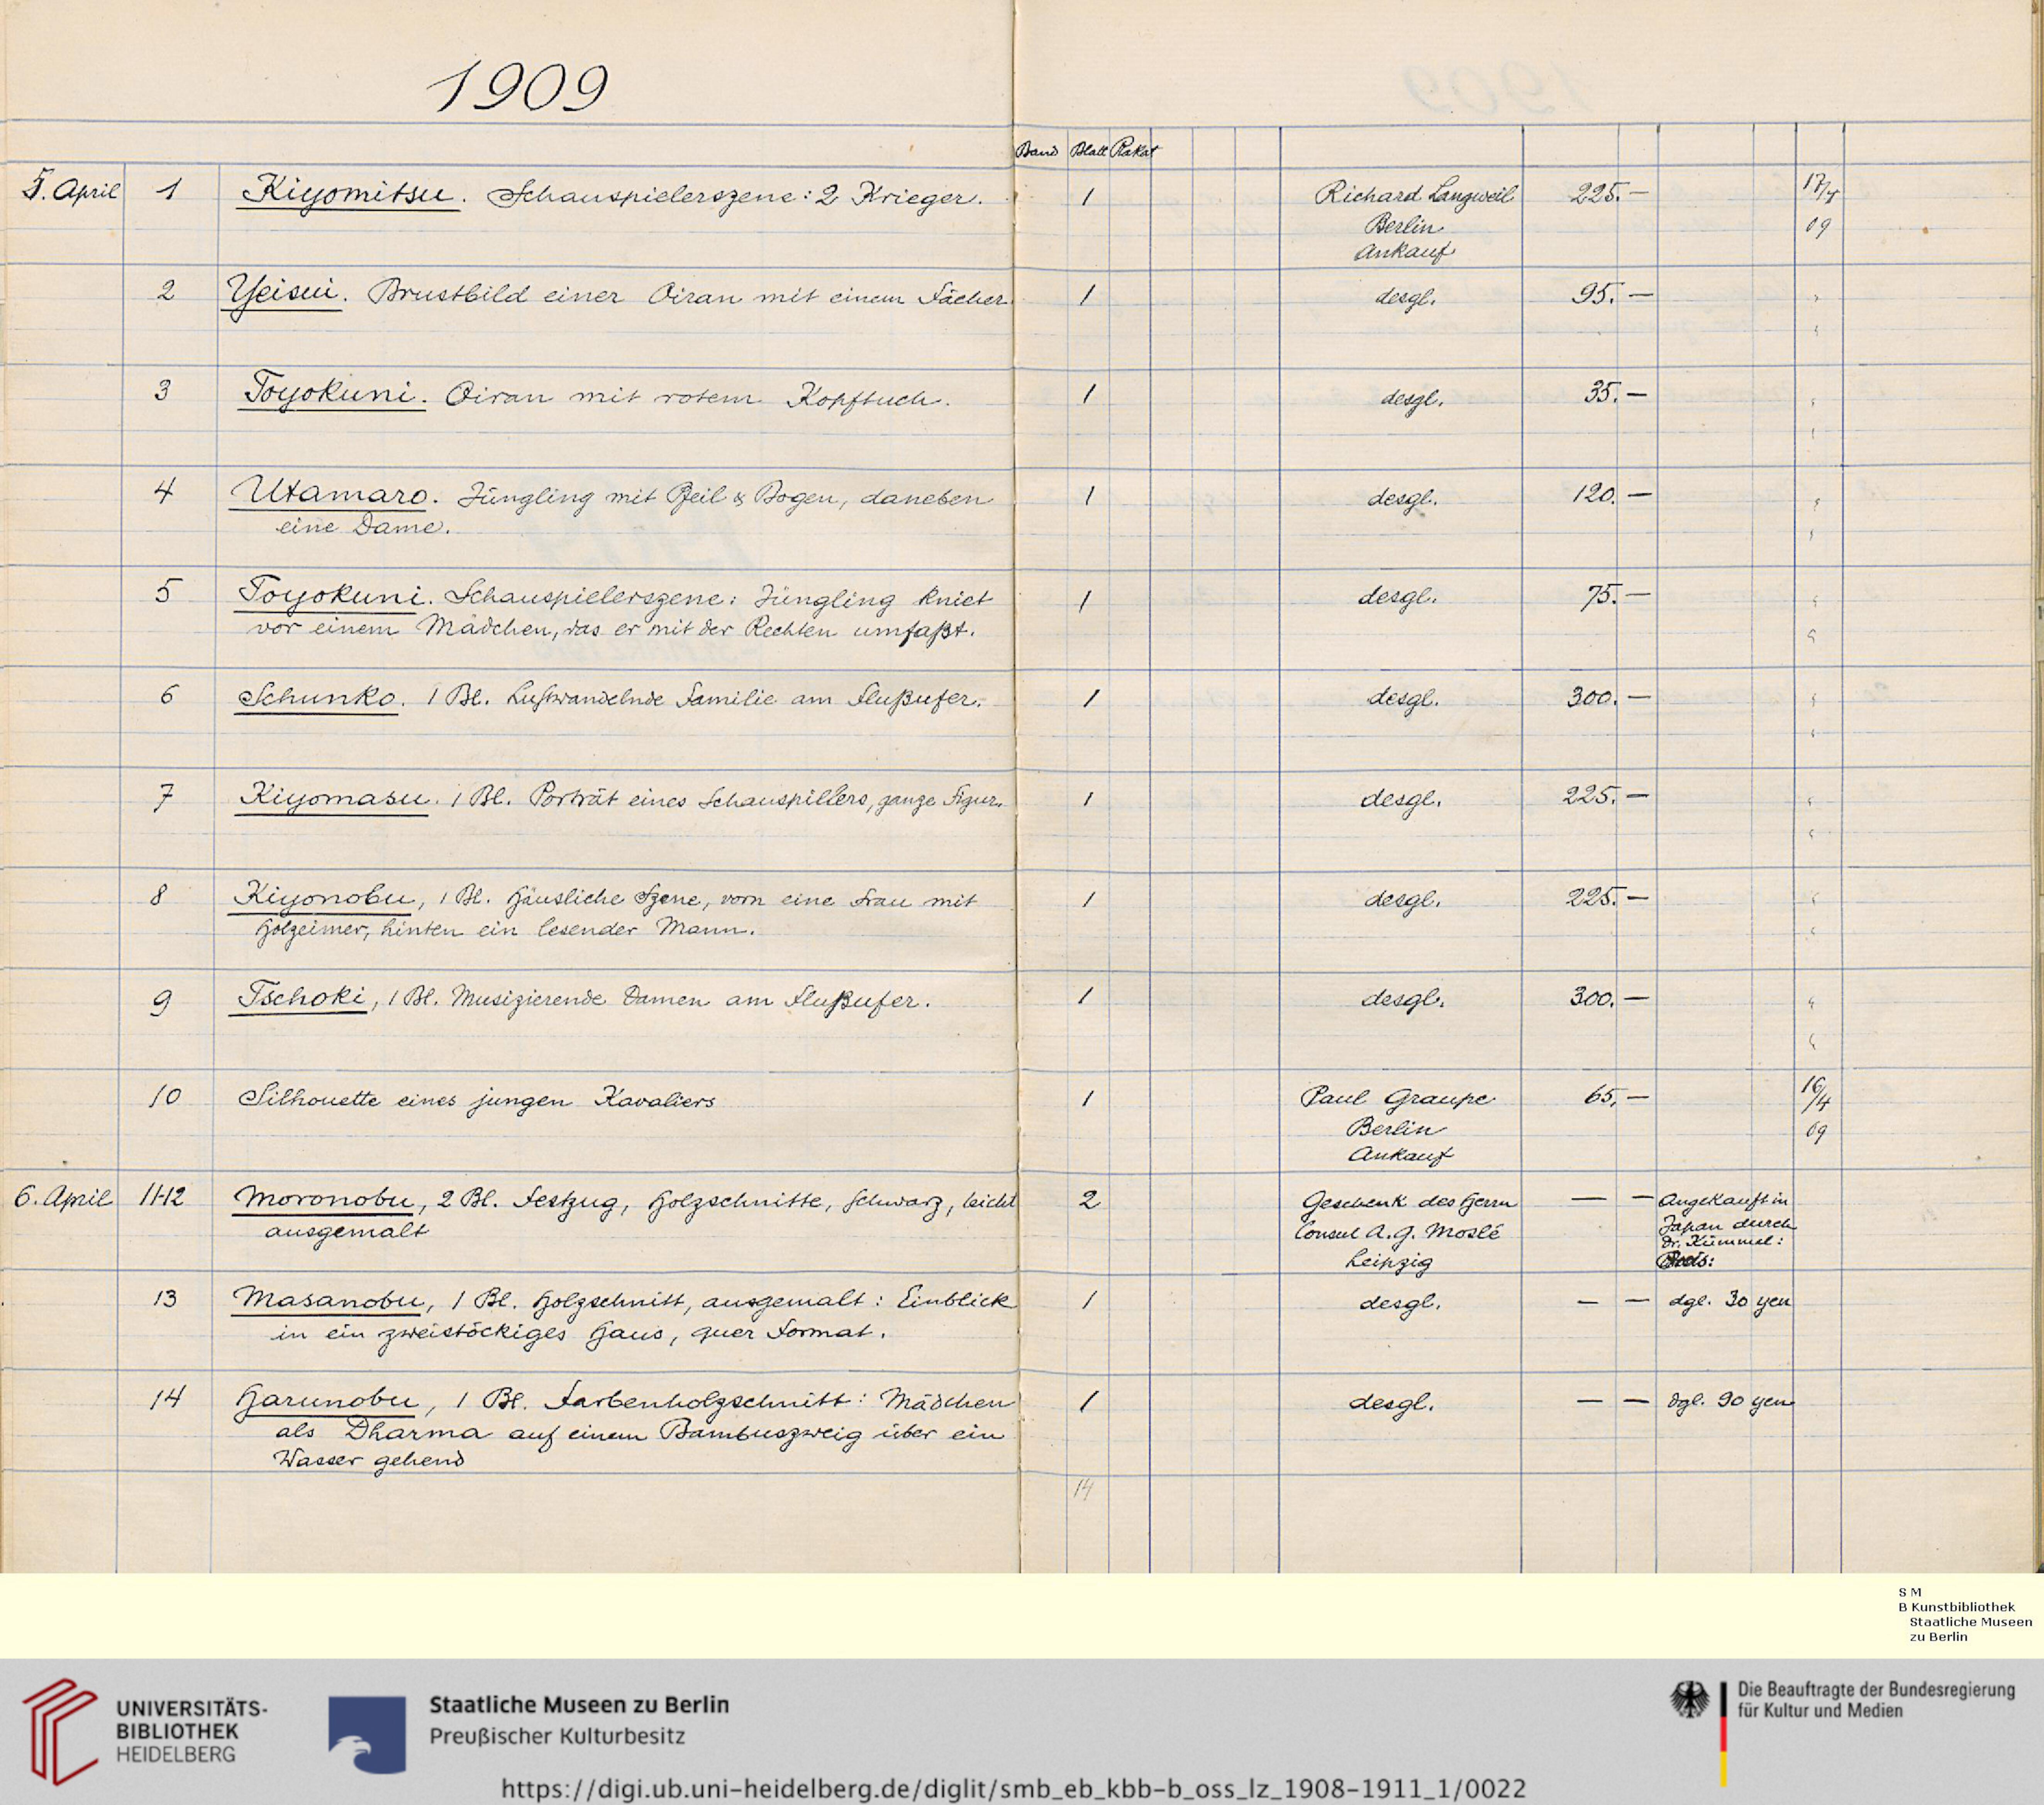 1909
Band Blatt Plakat
5. April 1 Kiyomitsu. Schauspielerszene: 2 Krieger. 1 Richard Langweil 225.—
Berlin 09
Ankauf
2 Yeisui. Brustbild einer Oiran mit einem Fächer 1 desgl. 95.—
3 Toyokuni. Oiran mit rotem Kopftuch. 1 desgl. 35.—
4 Utamaro. Jüngling mit Pfeil & Bogen, daneben 1 desgl. 120.—
eine Dame.
5 Toyokuni. Schauspielerszene: Jüngling kniet 1 desgl. 75.—
vor einem Mädchen, das er mit der Rechten umfaßt.
6 Schunko. 1 Bl. Lustwandelnde Familie am Flußufer. 1 desgl. 300.—
7 Kiyomasu. 1 Bl. Porträt eines Schauspillers, ganze Figur. 1 desgl. 225.—
8 Kiyonobu, 1 Bl. Häusliche Szene, vorn eine Frau mit 1 desgl. 225.—
Holzeimer, hinten ein lesender Mann.
9 Tschoki, 1 Bl. Musizierende Damen am Flußufer. 1 desgl. 300.—
10 Silhouette eines jungen Kavaliers 1 Paul Graupe 65,— 16/4
Berlin 09
Ankauf
6. April 11-12 Moronobu, 2 Bl. Festzug, Holzschnitte, schwarz, leicht 2 Geschenk des Herrn — — Angekauft in
ausgemalt Consul A. G. Moslé Japan durch
Dr. Kümmel:
Leipzig Preis:
13 Masanobu, 1 Bl. Holzschnitt, ausgemalt: Einblick 1 desgl. — — dgl. 30 yen
in ein zweistöckiges Haus, quer Format.
14 Harunobu, 1 Bl. Farbenholzschnitt: Mädchen 1 desgl. — — dgl. 90 yen
als Dharma auf einem Bambuszweig über ein
Wasser gehend
14
S M
B Kunstbibliothek
Staatliche Museen
zu Berlin
UNIVERSITÄTS-
BIBLIOTHEK
HEIDELBERG
Staatliche Museen zu Berlin
Preußischer Kulturbesitz
Die Beauftragte der Bundesregierung
für Kultur und Medien
https://digi.ub.uni-heidelberg.de/diglit/smb_eb_kbb-b_oss_lz_1908-1911_1/0022